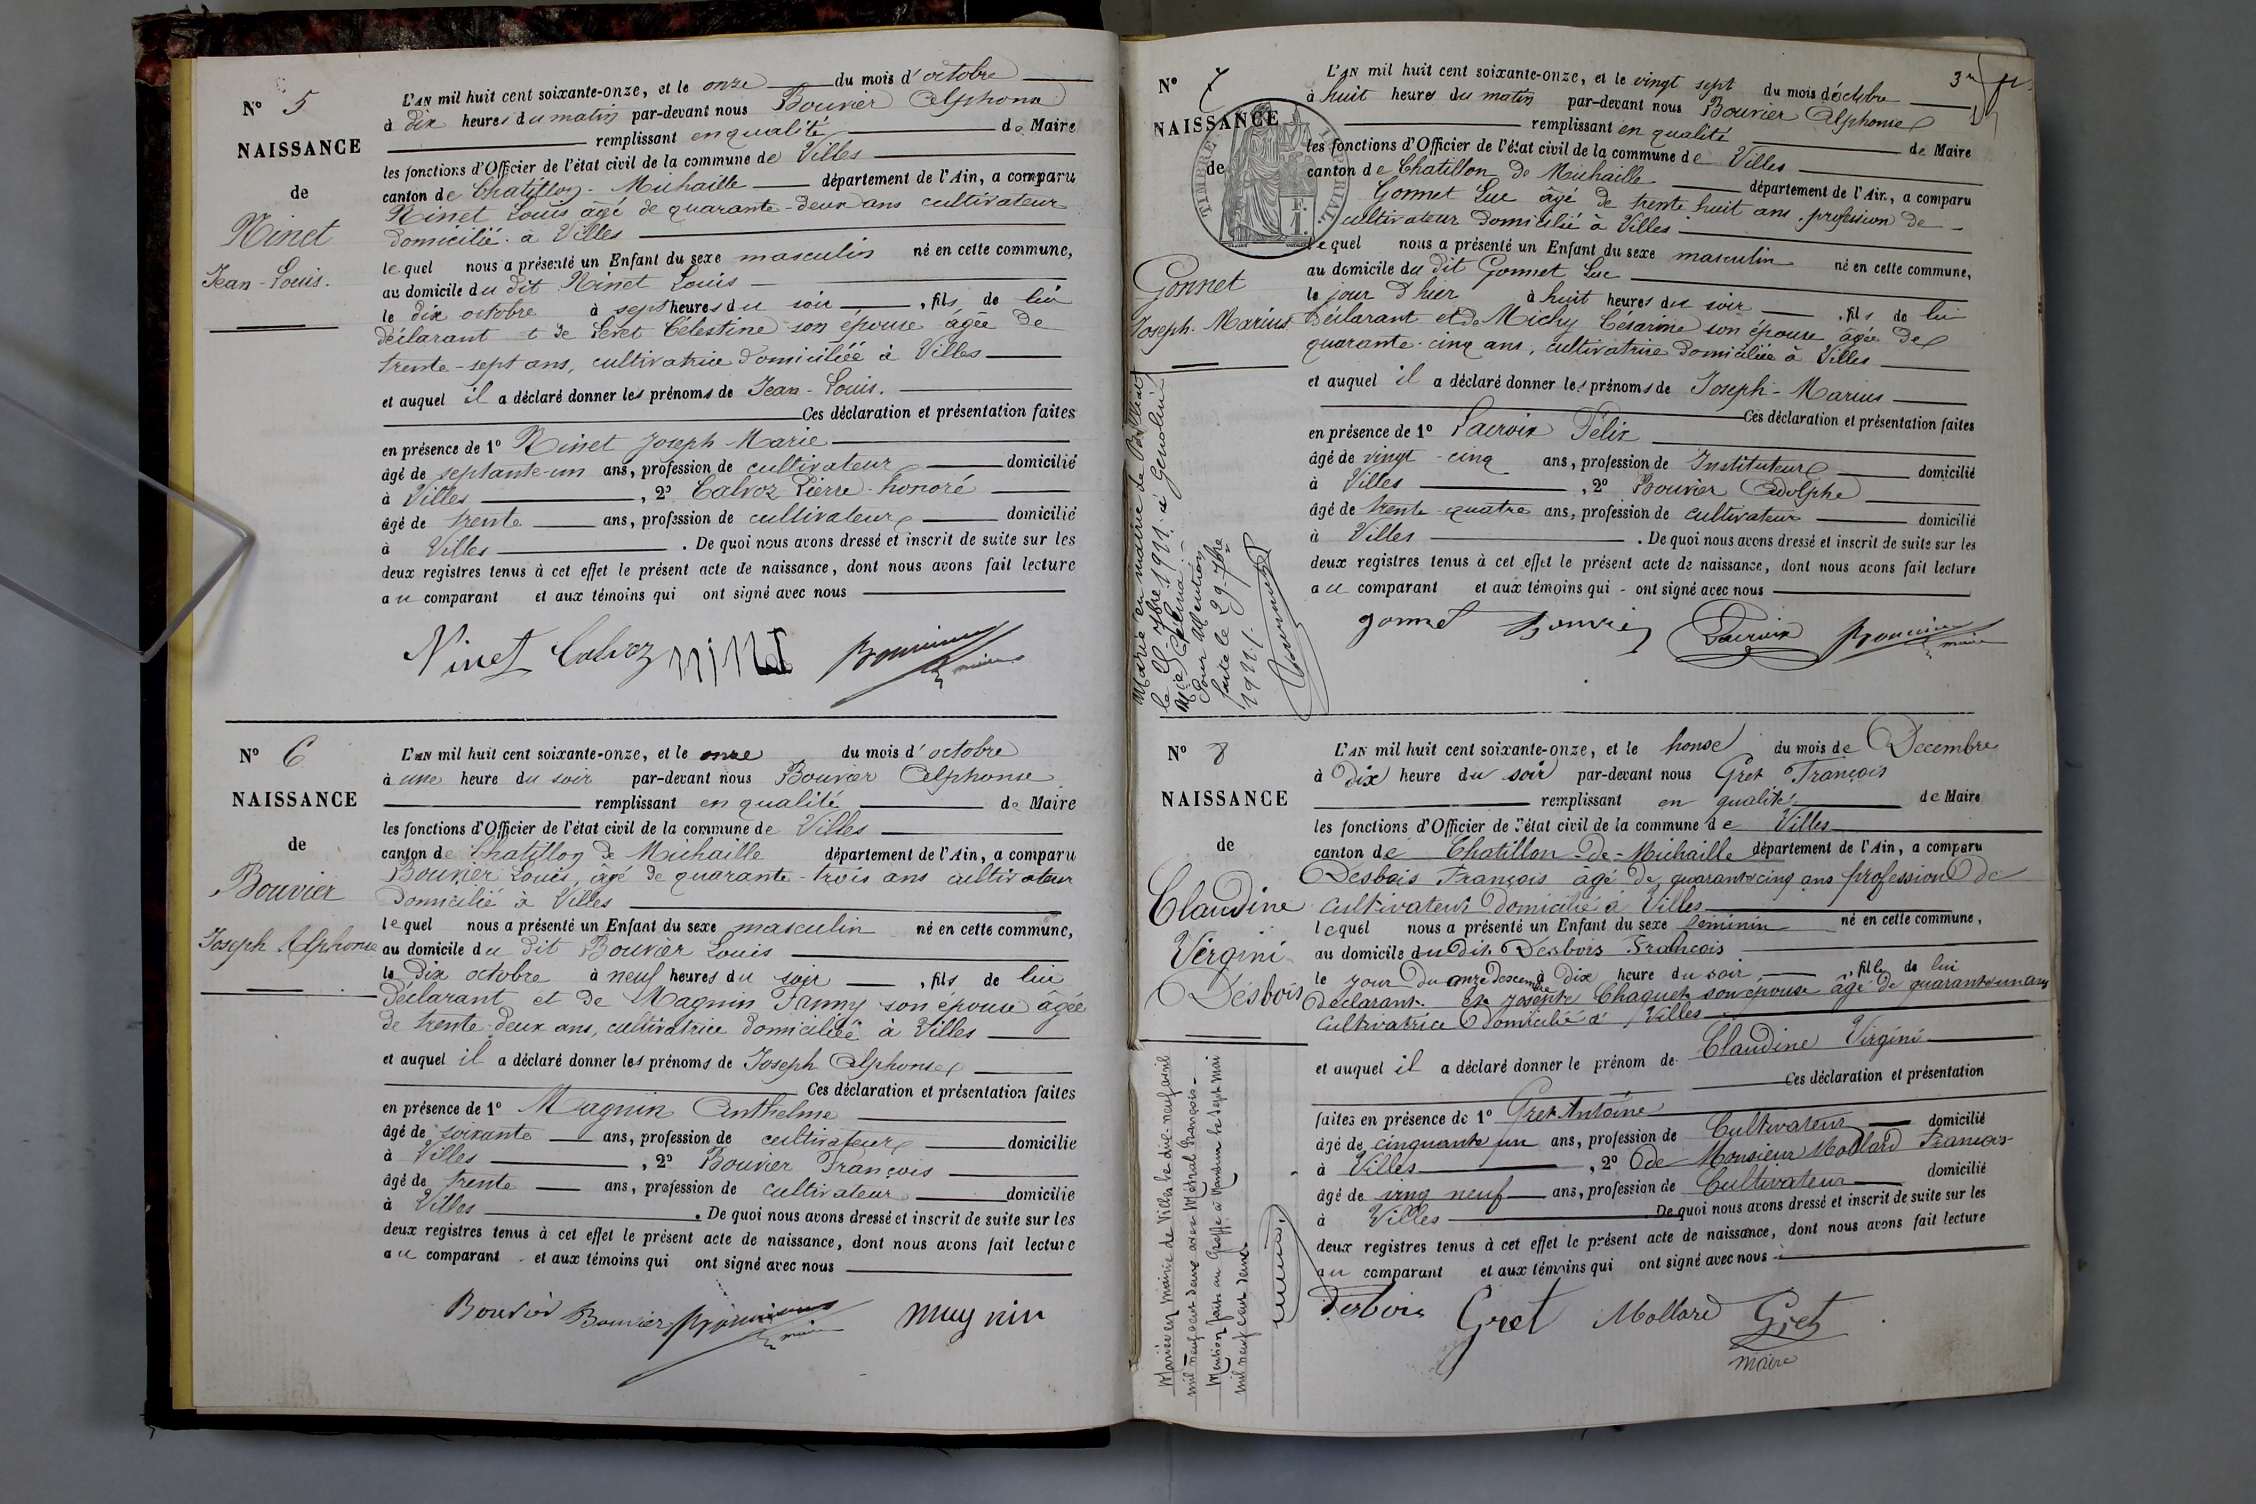 N° 5
NAISSANCE
de
Ninet
Jean-Louis.
L'AN mil huit cent soixante-onze, et le onze du mois d'octobre
à dix heures du matin par-devant nous Bouvier Alphonse
remplissant en qualité de Maire
les fonctions d'Officier de l'état civil de la commune de Villes
canton de Chatillon-Michaille département de l'Ain, a comparu
Ninet Louis âgé de quarante-deux ans cultivateur
domicilié à Villes
lequel nous a présenté un Enfant du sexe masculin né en cette commune,
au domicile du dit Ninet Louis
le dix octobre à sept heures du soir, fils de lui
déclarant et de Péret Célestine son épouse âgée de
trente-sept ans, cultivatrice domiciliée à Villes
et auquel il a déclaré donner les prénoms de Jean-Louis.
Ces déclaration et présentation faites
en présence de 1° Ninet Joseph-Marie
âgé de septante-un ans, profession de cultivateur domicilié
à Villes, 2° Calvoz Pierre-honoré
âgé de trente ans, profession de cultivateur domicilié
à Villes. De quoi nous avons dressé et inscrit de suite sur les
deux registres tenus à cet effet le présent acte de naissance, dont nous avons fait lecture
au comparant et aux témoins qui ont signé avec nous
Ninet Calvoz Ninet Bouvier
maire
N° 6
NAISSANCE
de
Bouvier
Joseph Alphonse
L'AN mil huit cent soixante-onze, et le onze du mois d'octobre
à une heure du soir par-devant nous Bouvier Alphonse
remplissant en qualité de Maire
les fonctions d'Officier de l'état civil de la commune de Villes
canton de Chatillon de Michaille département de l'Ain, a comparu
Bouvier Louis, âgé de quarante-trois ans cultivateur
domicilié à Villes
lequel nous a présenté un Enfant du sexe masculin né en cette commune,
au domicile du dit Bouvier Louis
le dix octobre à neuf heures du soir, fils de lui
déclarant et de Magnin Fanny son épouse âgée
de trente-deux ans, cultivatrice domiciliée à Villes
et auquel il a déclaré donner les prénoms de Joseph Alphonse
Ces déclaration et présentation faites
en présence de 1° Magnin Anthelme
âgé de soixante ans, profession de cultivateur domicilié
à Villes, 2° Bouvier François
âgé de trente ans, profession de cultivateur domicilié
à Villes. De quoi nous avons dressé et inscrit de suite sur les
deux registres tenus à cet effet le présent acte de naissance, dont nous avons fait lecture
au comparant et aux témoins qui ont signé avec nous
Bouvier Bouvier Bouvier magnin
maire
3
N° 7
NAISSANCE
de
TIMBRE IMPÉRIAL
Gonnet
Joseph-Marius
L'AN mil huit cent soixante-onze, et le vingt sept du mois d'octobre
à huit heures du matin par-devant nous Bouvier Alphonse
remplissant en qualité de Maire
les fonctions d'Officier de l'état civil de la commune de Villes
canton de Chatillon de Michaille département de l'Ain, a comparu
Gonnet Luc âgé de trente huit ans, profession de
cultivateur domicilié à Villes
lequel nous a présenté un Enfant du sexe masculin né en cette commune,
au domicile du dit Gonnet Luc
le jour d'hier à huit heures du soir, fils de lui
déclarant et de Michy Césarine son épouse, âgée de
quarante-cinq ans, cultivatrice domiciliée à Villes
et auquel il a déclaré donner les prénoms de Joseph-Marius
Ces déclaration et présentation faites
en présence de 1° Lacroix Félix
âgé de vingt-cinq ans, profession de Instituteur domicilié
à Villes, 2° Bouvier Adolphe
âgé de trente-quatre ans, profession de cultivateur domicilié
à Villes. De quoi nous avons dressé et inscrit de suite sur les
deux registres tenus à cet effet le présent acte de naissance, dont nous avons fait lecture
au comparant et aux témoins qui ont signé avec nous
gonnet Bouvier Lacroix Bouvier
maire
Marié en mairie de Billiat
le 7bre 1911. à Genolin
Mie
Pour Mention
faite le 29 7bre
1911./.
N° 8
NAISSANCE
de
Claudine
Virgini
Désbois
L'AN mil huit cent soixante-onze, et le honse du mois de Decembre
à Dix heure du soir par-devant nous Gret François
remplissant en qualité de Maire
les fonctions d'Officier de l'état civil de la commune de Villes
canton de Chatillon-de-Michaille département de l'Ain, a comparu
Désbois François agé de quarante cinq ans profession de
cultivateur domicilié à Villes
lequel nous a présenté un Enfant du sexe féminin né en cette commune,
au domicile du dit Desbois François
le jour du onze descembre à dix heure du soir, fille de lui
declarant. Et Josephte Chaquet son epouse âgé de quarante un ans
cultivatrice Domicilié à Villes
et auquel il a déclaré donner le prénom de Claudine Virgini
Ces déclaration et présentation
faites en présence de 1° Gret Antoine
âgé de cinquante un ans, profession de Cultivateur domicilié
à Villes, 2° de Monsieur Mollard François
âgé de ving neuf ans, profession de Cultivateur domicilié
à Villes De quoi nous avons dressé et inscrit de suite sur les
deux registres tenus à cet effet le présent acte de naissance, dont nous avons fait lecture
au comparant et aux témoins qui ont signé avec nous
Desbois Gret Mollard Gret
maire
Mariée en Mairie de Villes le dix-neuf avril
mil neuf cent deux avec Métral François.
Mention faite au Greffe à Nantua le sept Mai
mil neuf cent deux.